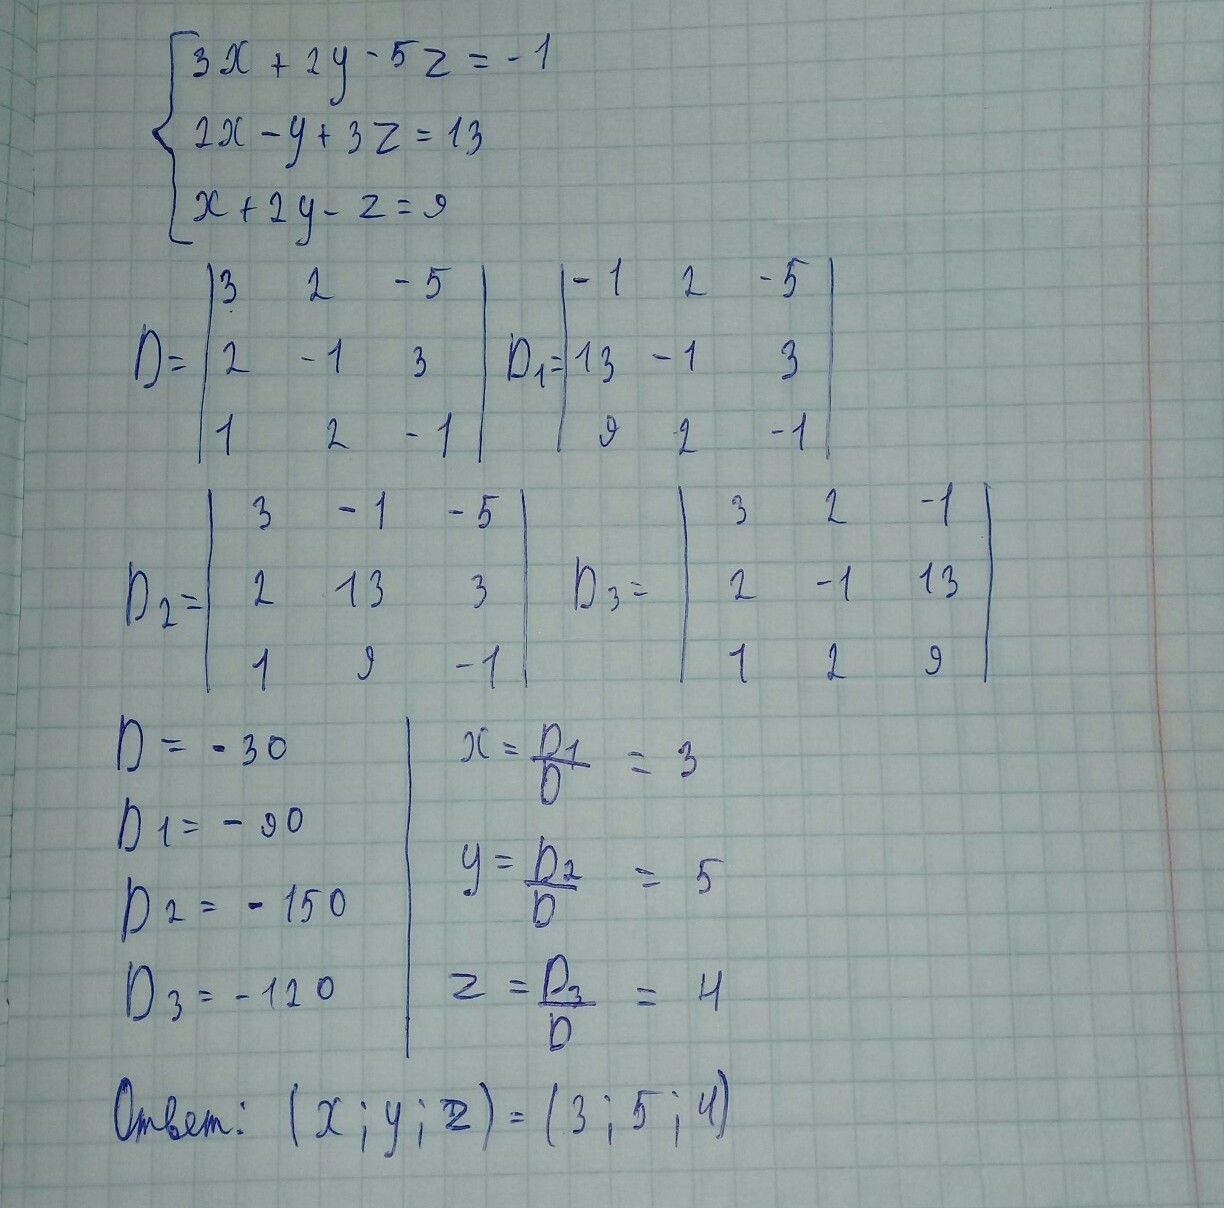 3x + 2y - 5z = -1
2x - y + 3z = 13
x + 2y - z = 9
D = | 3 2 -5 | D1 = | -1 2 -5 |
| 2 -1 3 | | 13 -1 3 |
| 1 2 -1 | | 9 2 -1 |
D2 = | 3 -1 -5 | D3 = | 3 2 -1 |
| 2 13 3 | | 2 -1 13 |
| 1 9 -1 | | 1 2 9 |
D = -30
D1 = -90
D2 = -150
D3 = -120
x = D1/D = 3
y = D2/D = 5
z = D3/D = 4
Ответ: (x; y; z) = (3; 5; 4)